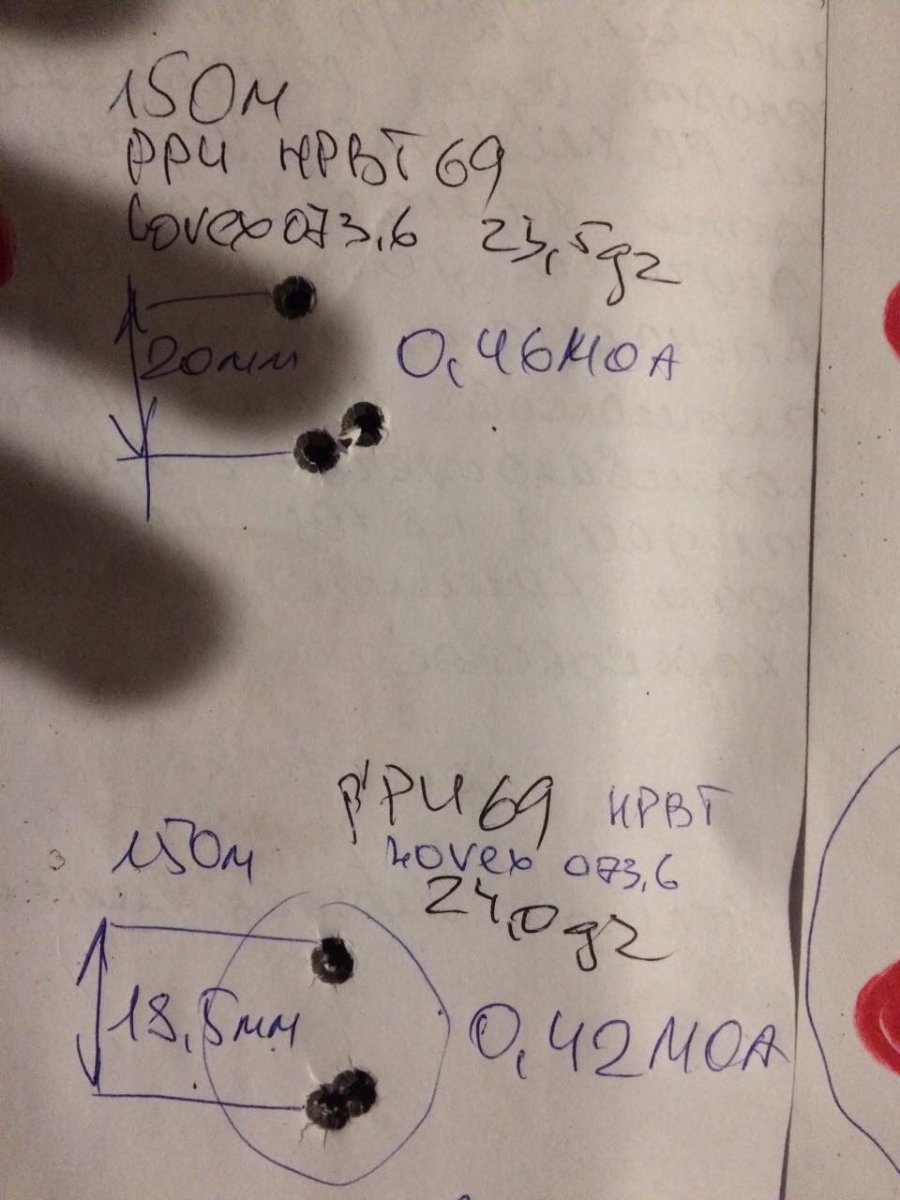 150м
PPU HPBT 69
Lovex 073,6 23,5gr
20мм
0,46MOA
PPU 69 HPBT
150м
Lovex 073,6
24,0gr
18,5мм
0,42MOA